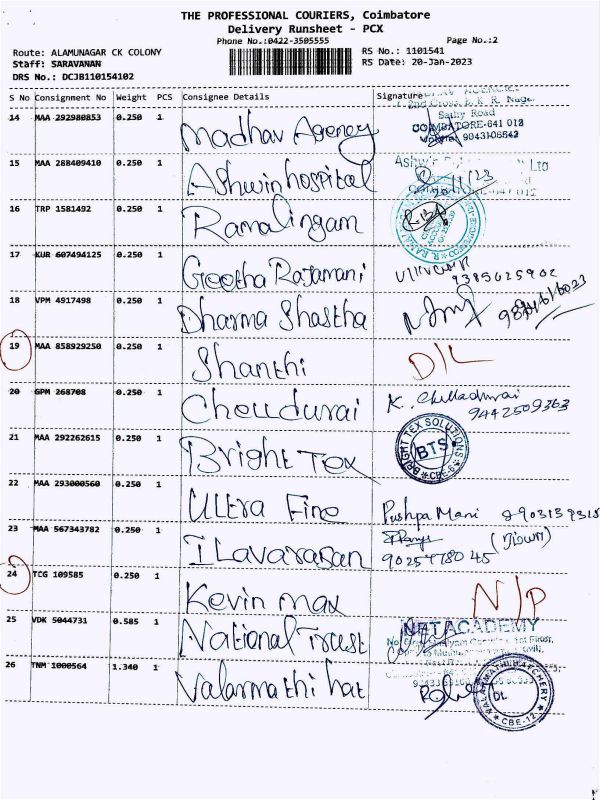 THE PROFESSIONAL COURIERS, Coimbatore
Delivery Runsheet - PCX
Phone No.:0422-3505555 Page No.:2
Route: ALAMUNAGAR CK COLONY RS No.: 1101541
Staff: SARAVANAN RS Date: 20-Jan-2023
DRS No.: DCJB110154102
S No Consignment No Weight PCS Consignee Details Signature
14 MAA 292980853 0.250 1 Madhav Agency
Sathy Road
COIMBATORE-641 012
15 MAA 288409410 0.250 1 Ashwin hospital
16 TRP 1581492 0.250 1 Ramalingam
17 KUR 607494125 0.250 1 Geetha Rajamani 9385025902
18 VPM 4917498 0.250 1 Dharma Shastha
19 MAA 858929250 0.250 1 Shanthi D/L
20 GPM 268708 0.250 1 Chelldurai K. Chelladurai
9442509363
21 MAA 292262615 0.250 1 Bright Tex BRIGHT TEX SOLUTIONS
BTS
CBE-6
22 MAA 293000560 0.250 1 Ultra Fine Pushpa Mani 8903159315
23 MAA 567343782 0.250 1 ILavarasan
24 TCG 109585 0.250 1 Kevin max N/P
25 VDK 5044731 0.585 1 National Trust NET ACADEMY
26 TNM 1000564 1.340 1 Valarmathi hat VALARMATHI HATCHERY
CBE-12